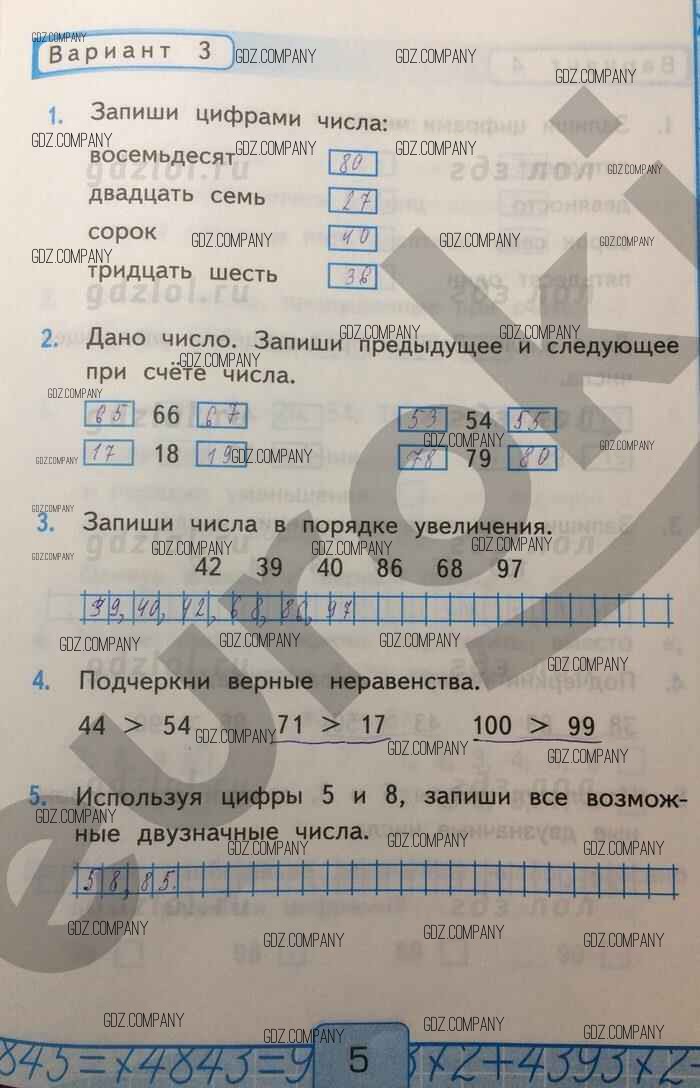 Вариант 3
1. Запиши цифрами числа:
восемьдесят 80
двадцать семь 27
сорок 40
тридцать шесть 36
2. Дано число. Запиши предыдущее и следующее
при счёте числа.
65 66 67 53 54 55
17 18 19 78 79 80
3. Запиши числа в порядке увеличения.
42 39 40 86 68 97
39, 40, 42, 68, 86, 97
4. Подчеркни верные неравенства.
44 > 54 71 > 17 100 > 99
5. Используя цифры 5 и 8, запиши все возмож-
ные двузначные числа.
58, 85.
5
GDZ.COMPANY
gdzlol.ru
euroki